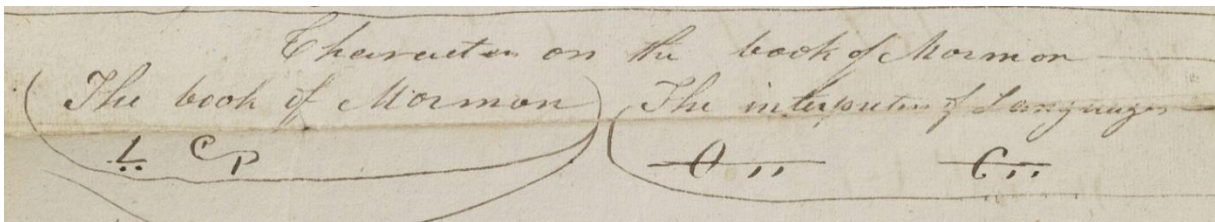 Character on the book of Mormon
The book of Mormon The interpreter of Languages